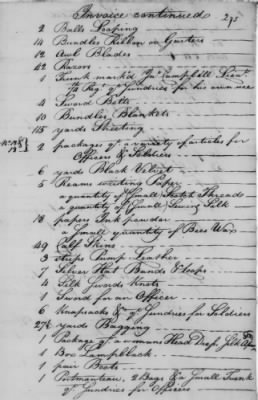 Invoice continued 295
2 Balls Soaping
14 Bundles Ribbon or Garters
12 Awl Blades
42 Razors
1 Trunk mark'd Jno Campbell Lieut.
Regt of Sundries for his own use
4 Sword Belts
10 Bundles Blankets
115 yards Sheeting
2 packages of a variety of articles for
Officers & Soldiers
6 yards Black Velvet
5 Reams writing Paper
a quantity of Small Thread
a quantity of Small Sewing Silk
18 papers Ink powder
a Small quantity of Bees Wax
49 Calf Skins
3 strips Pump Leather
7 Silver Hat Bands & Loops
4 Silk Swords Knots
1 Sword for an Officer
6 Knapsacks & qy of Sundries for Soldiers
27½ yards Bagging
1 Package of a womans Head Dress, Silk
1 Box Lampblack
1 pair Boots
1 Portmanteau, 2 Bags & a Small Trunk
qy of Sundries for Officers